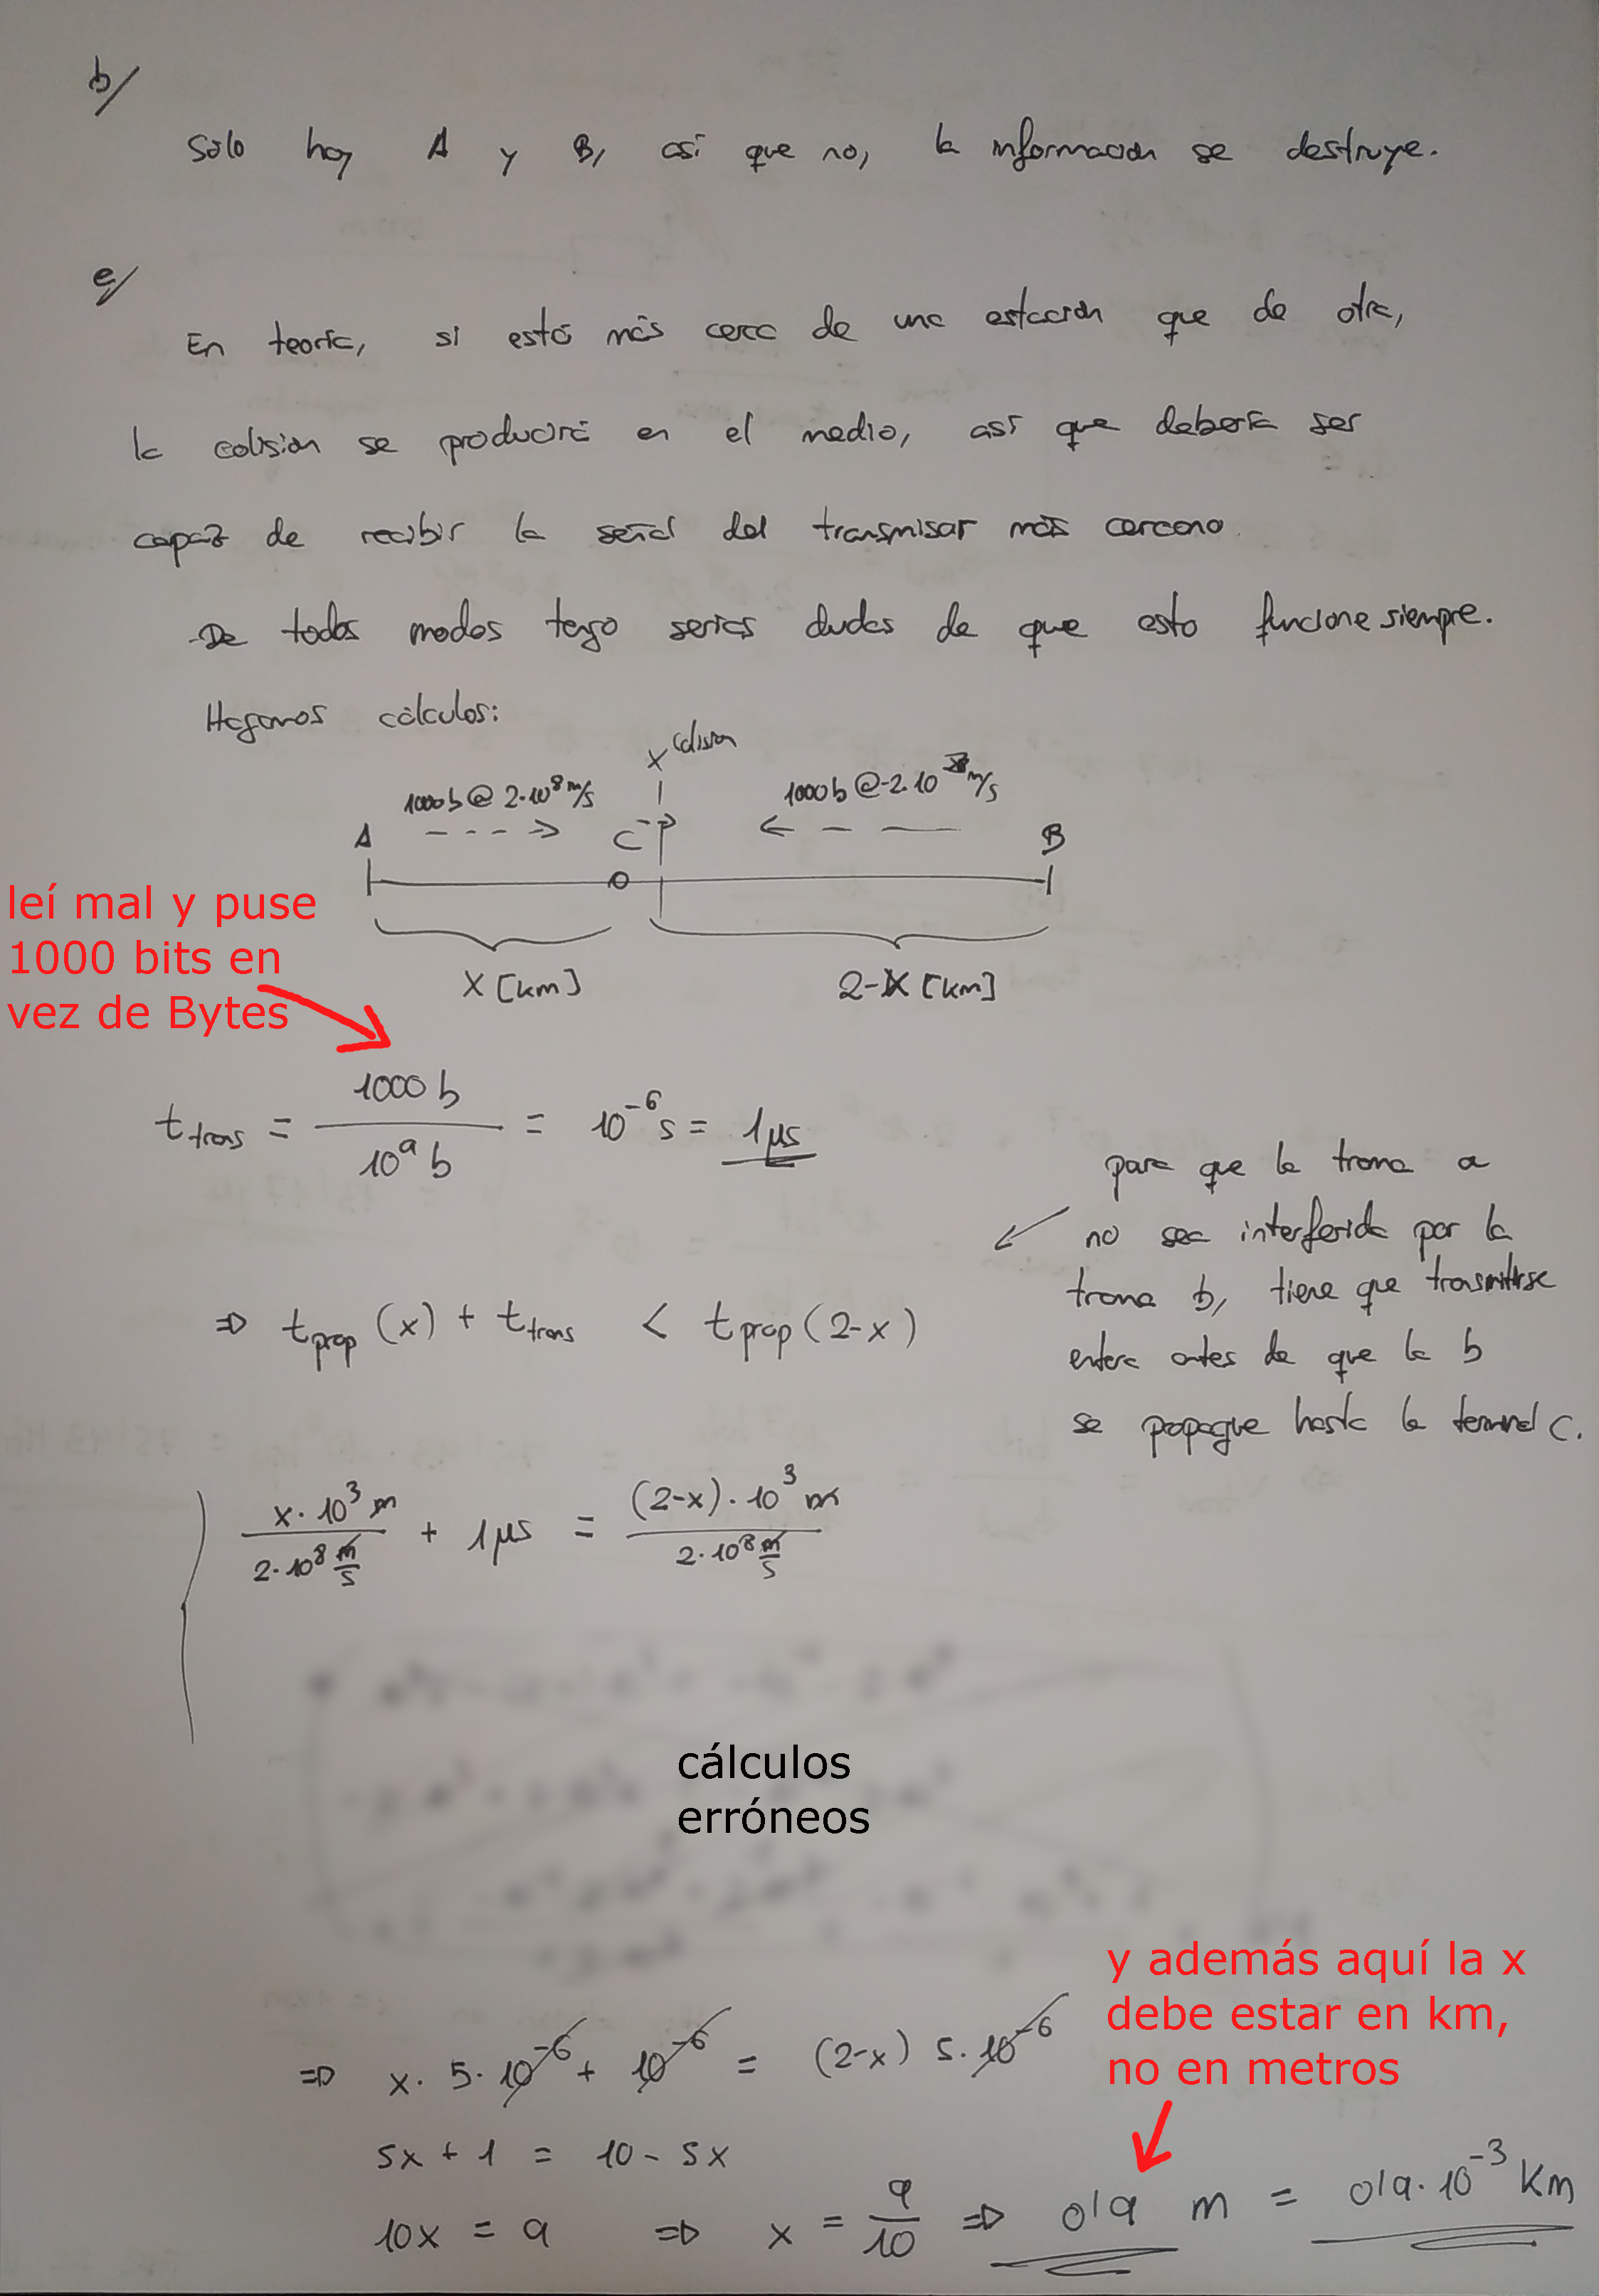 b/
Sólo hay A y B, así que no, la información se destruye.
c/
En teoría, si está más cerca de una estación que de otra,
la colisión se producirá en el medio, así que debería ser
capaz de recibir la señal del transmisor más cercano.
De todos modos tengo serias dudas de que esto funcione siempre.
Hagamos cálculos:
x colisión
1000b@2·10⁸ m/s
1000b@-2·10⁸ m/s
A
C
B
leí mal y puse
1000 bits en
vez de Bytes
X [km]
2-X [km]
t trans = 1000 b / 10⁹ b = 10⁻⁶ s = 1μs
para que la trama a
no sea interferida por la
trama b, tiene que transmitirse
entera antes de que la b
se propague hasta la terminal C.
⇒ t prop (x) + t trans < t prop (2-x)
x·10³ m / 2·10⁸ m/s + 1μs = (2-x)·10³ m / 2·10⁸ m/s
cálculos
erróneos
y además aquí la x
debe estar en km,
no en metros
⇒ x·5·10⁻⁶ + 10⁻⁶ = (2-x) 5·10⁻⁶
5x + 1 = 10 - 5x
10x = 9 ⇒ x = 9/10 ⇒ 0'9 m = 0'9·10⁻³ Km